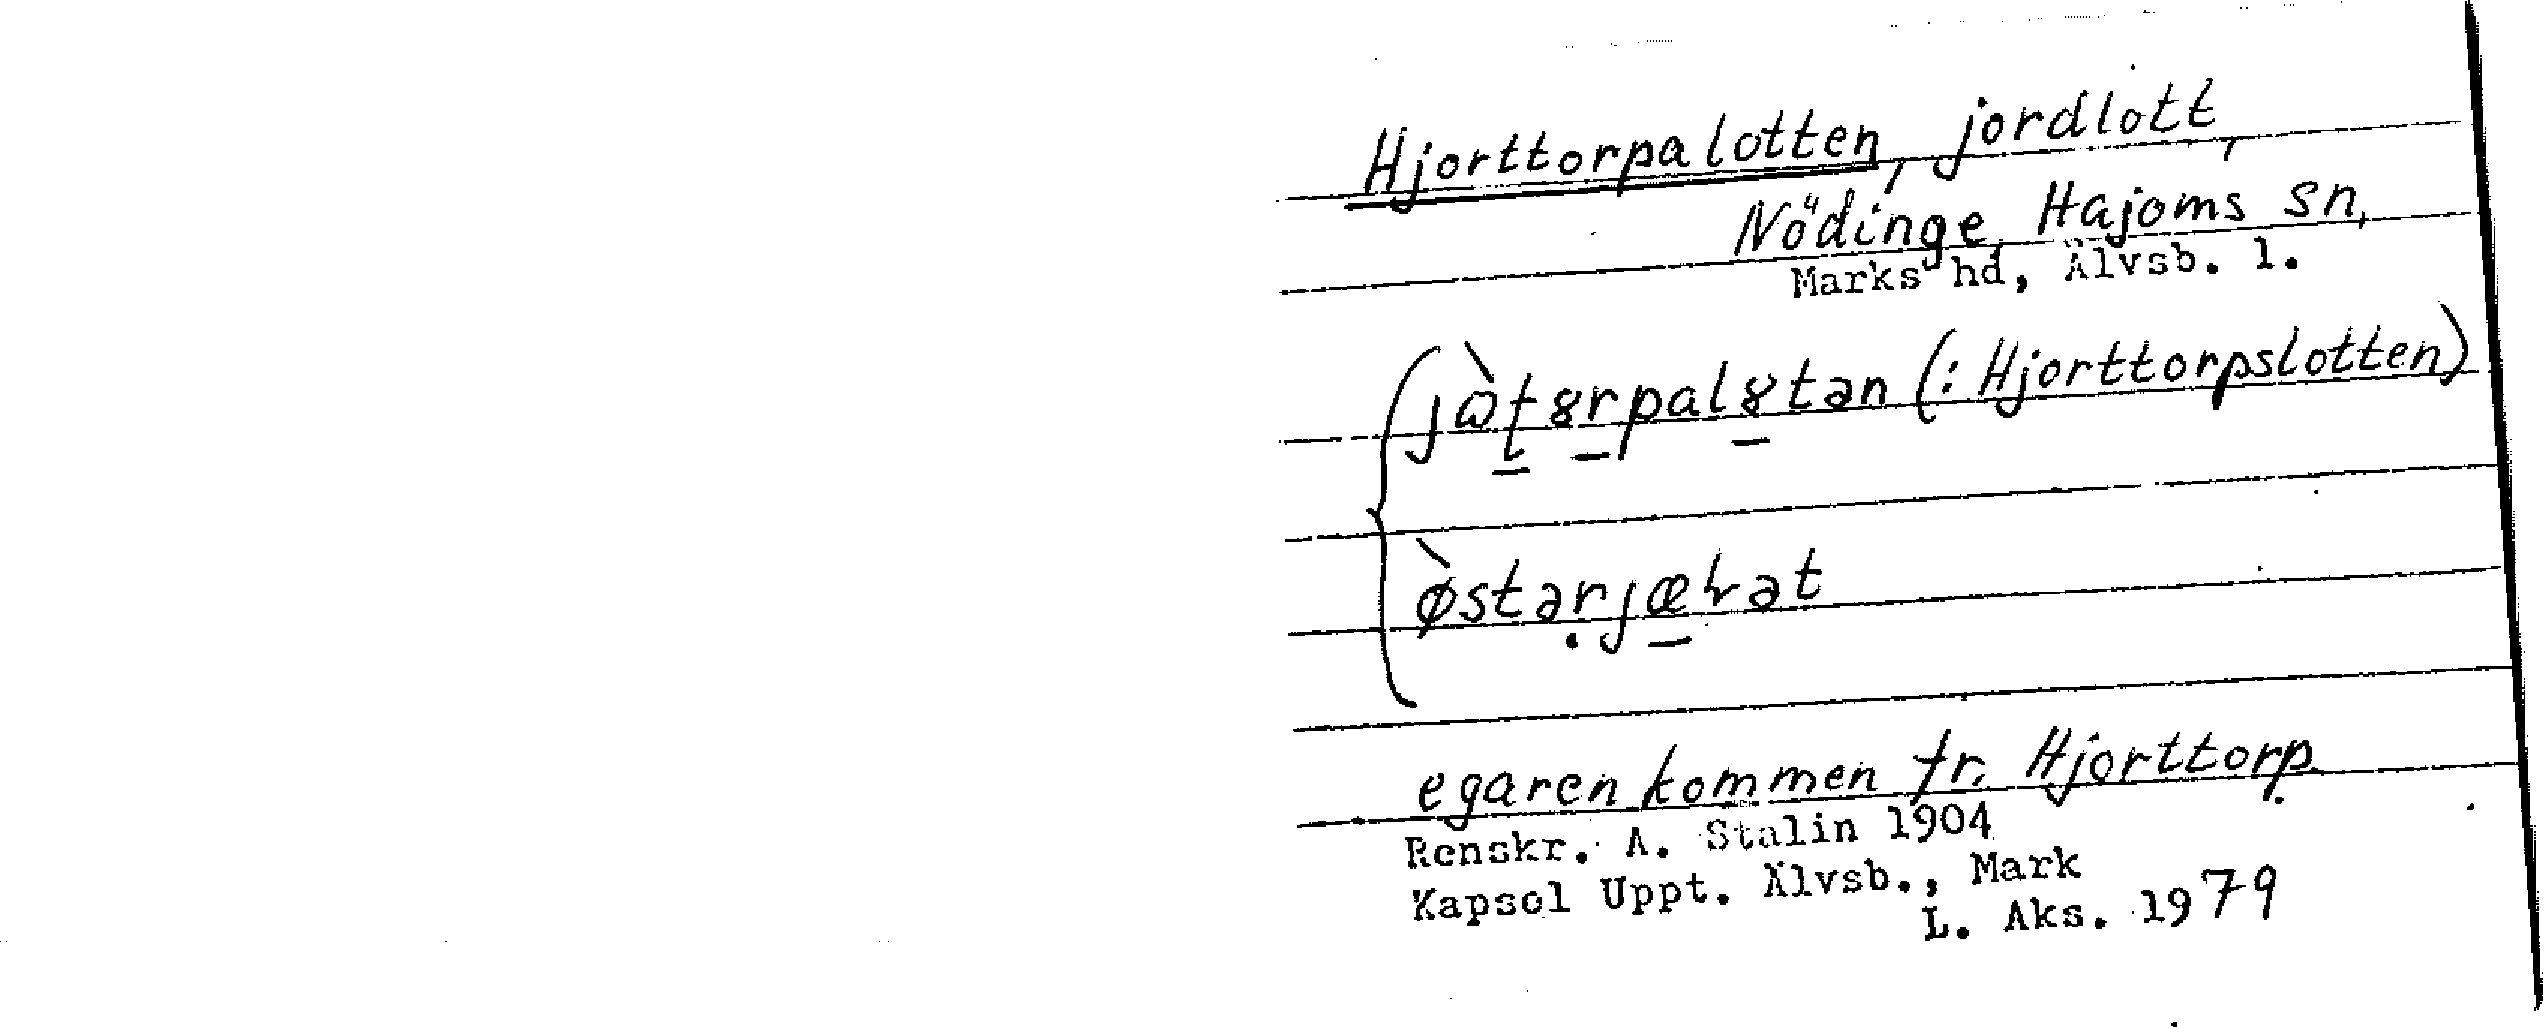 Hjorttorpalotten, jordlott,
Nödinge, Hajoms sn,
Marks hd, Älvsb. l.
(: Hjorttorpslotten)
egaren kommen fr. Hjorttorp.
Renskr. A. Stalin 1904
Kapsel Uppt. Älvsb., Mark
L. Aks. 1979